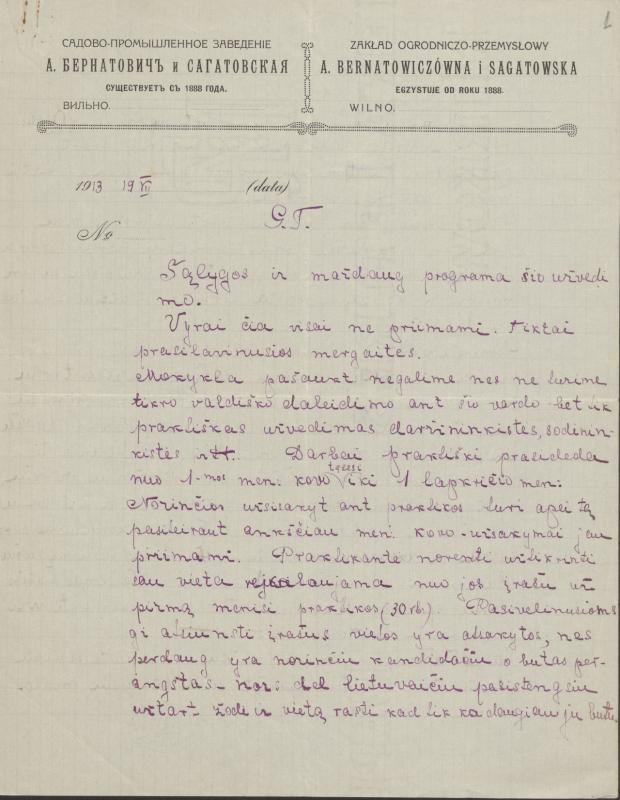 1
САДОВО-ПРОМЫШЛЕННОЕ ЗАВЕДЕНІЕ
А. БЕРНАТОВИЧЪ и САГАТОВСКАЯ
СУЩЕСТВУЕТЪ СЪ 1888 ГОДА.
ВИЛЬНО.
ZAKŁAD OGRODNICZO-PRZEMYSŁOWY
A. BERNATOWICZÓWNA i SAGATOWSKA
EGZYSTUJE OD ROKU 1888.
WILNO.
1913 19 VII (data)
G.T.
№
Sąlygos ir maždaug programa šio užvedi
mo.
Vyrai čia visai ne priimami. Tiktai
prasilavinusios mergaitės.
Mokykla pašaukt negalime nes ne turime
tikro valdiško daleidimo ant šio vardo bet tik
praktiškas užvedimas daržininkistės, sodinin-
kistės ir tt. Darbai praktiški prasideda
nuo 1-mos men: kovo tęsesi iki 1 lapkričio men:
Norinčios užsisakyt ant praktikos turi apei tą
pasiteiraut ankščiau men: kovo - užsakymai jau
priimami. Praktikantė norenti užtikrinti
sau vieta reikalaujama nuo jos įrašu už
pirmą menesi praktikos (30 rb). Pasivelinusioms
gi atsiunsti įrašus vietos yra atsakytos, nes
perdaug yra norinčiu kandidačiu o butas per-
ankstas - nors del lietuvaičiu pasistengsiu
užtart žode ir vietą rasti kad tik ko daugiau ju butu